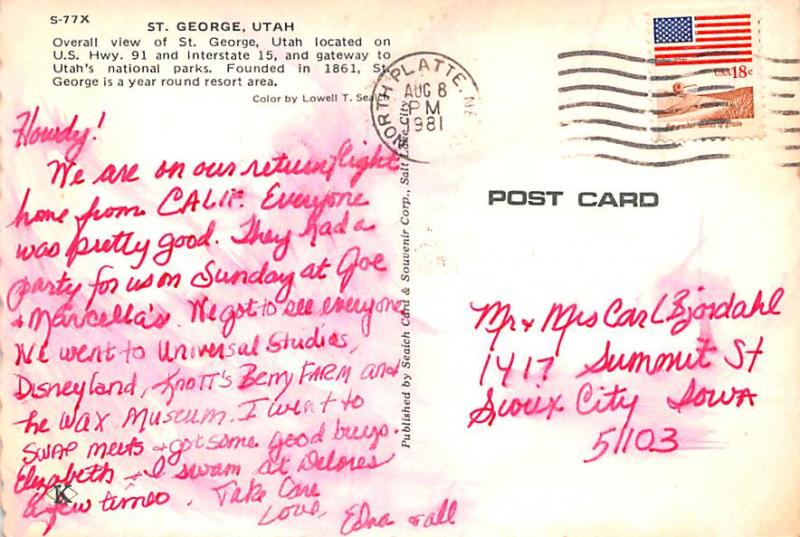 S-77X
ST. GEORGE, UTAH
Overall view of St. George, Utah located on
U.S. Hwy. 91 and Interstate 15, and gateway to
Utah's national parks. Founded in 1861, St.
George is a year round resort area.
Color by Lowell T. Seaich
Howdy!
We are on our return flight
home from CALIF. Everyone
was pretty good. They had a
party for us on Sunday at Joe
+ Marcella's. We got to see everyone
We went to Universal Studios,
Disneyland, Knott's Berry FARM and
the WAX Museum. I went to
SWAP meets + got some good buys.
Elizabeth + I swam at Delores
a few times. Take Care
Love,
Edna + all
K
Published by Seaich Card & Souvenir Corp., Salt Lake City
NORTH PLATTE, NE
AUG 8
PM
1981
USA 18c
for amber waves of grain
POST CARD
Mr + Mrs Carl Bjordahl
1417 Summit St
Sioux City Iowa
51103